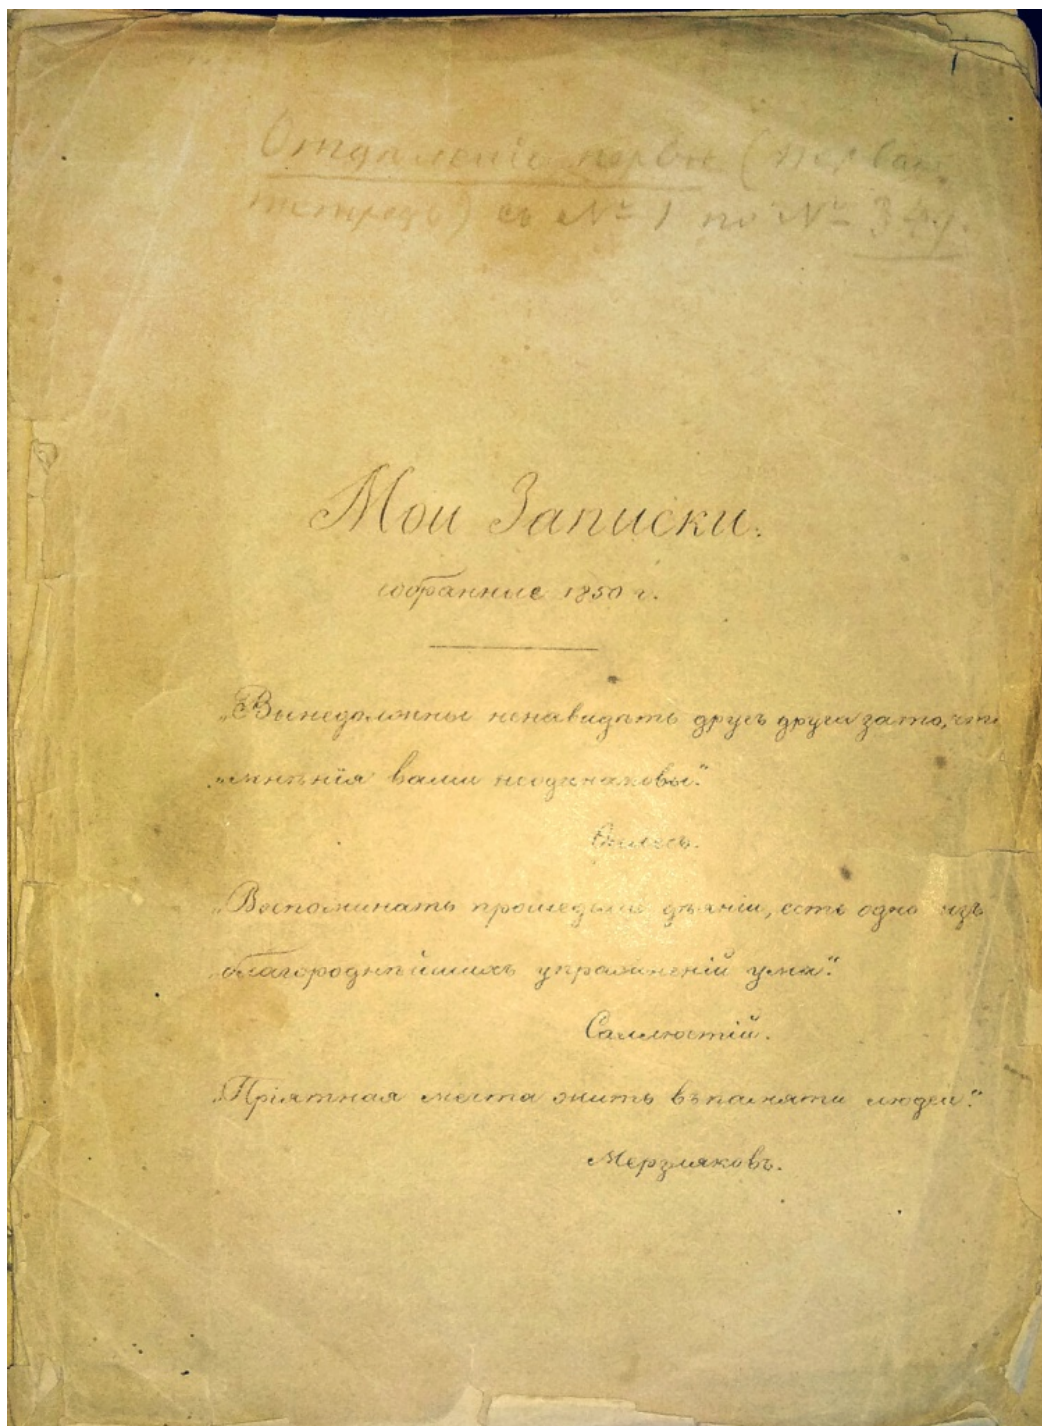 Отдѣленіе первое (первая
тетрадь) съ № 1 по №
Мои Записки.
собранные 1850 г.
„Вы не должны ненавидѣть другъ друга за то, что
„мнѣнія ваши неодинаковы."
„Воспоминать прошедшіе дѣянія, есть одно изъ
„благороднѣйшихъ упражненій ума."
Саллюстій.
„Пріятная мечта жить въ памяти людей."
Мерзляковъ.